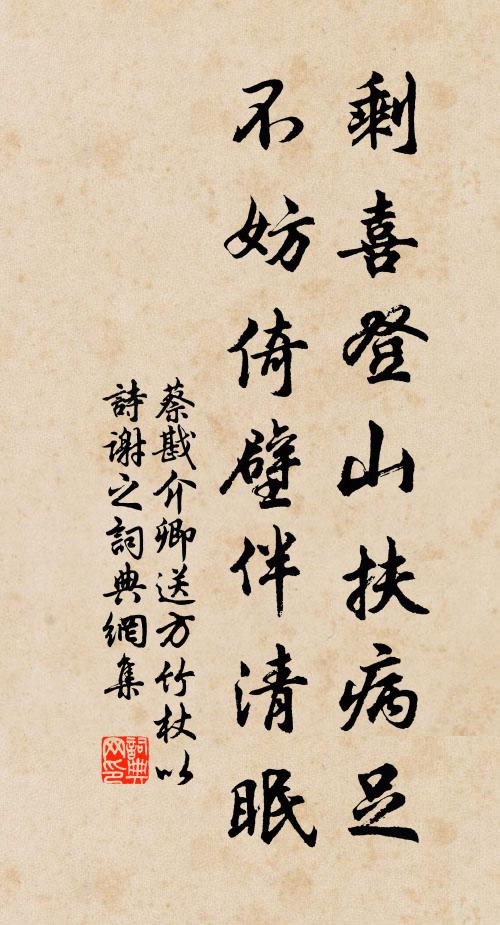 剩喜登山扶病足
不妨倚壁伴清眠
蔡戡介卿送方竹杖以
詩谢之詞典網集
詞典网印